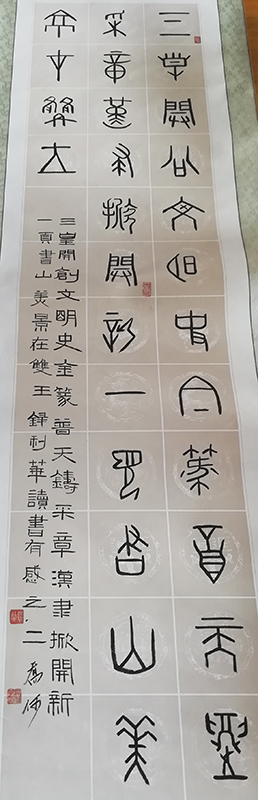 三皇開創文明史金篆普天鑄
采章漢隶掀開新一頁書山美
景在雙王
三皇開創文明史金篆普天鑄采章漢隶掀開新
一頁書山美景在雙王 利華讀書有感之二